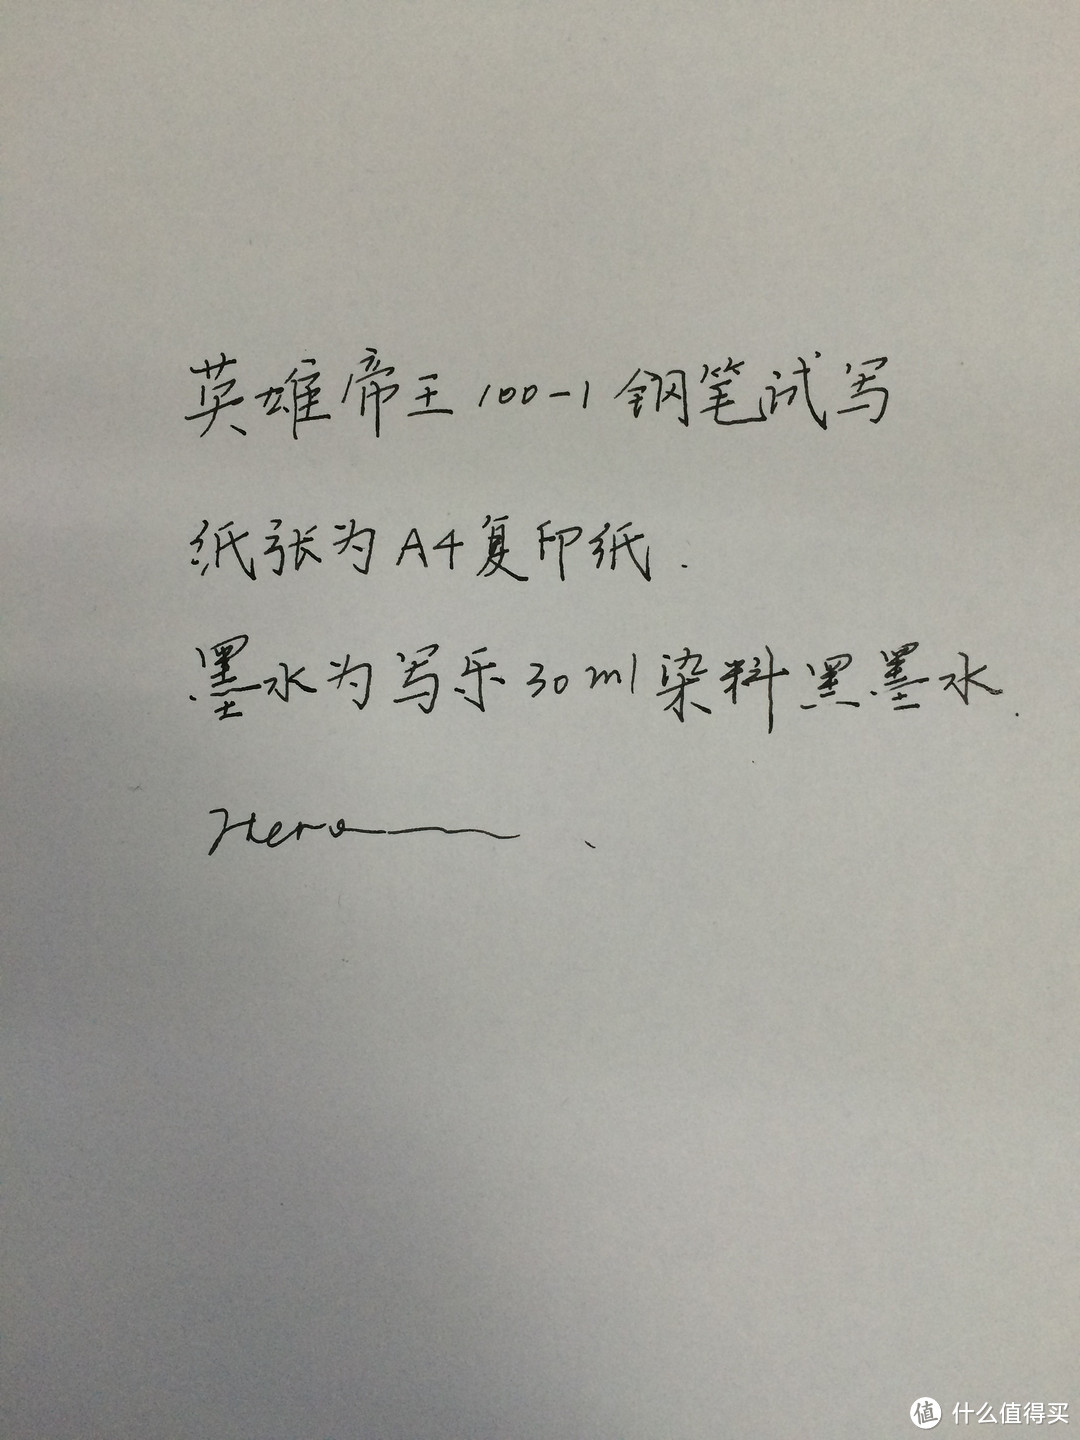 英雄帝王100-1钢笔试写
纸张为A4复印纸.
墨水为写乐30ml染料黑墨水.
Hero
值 什么值得买